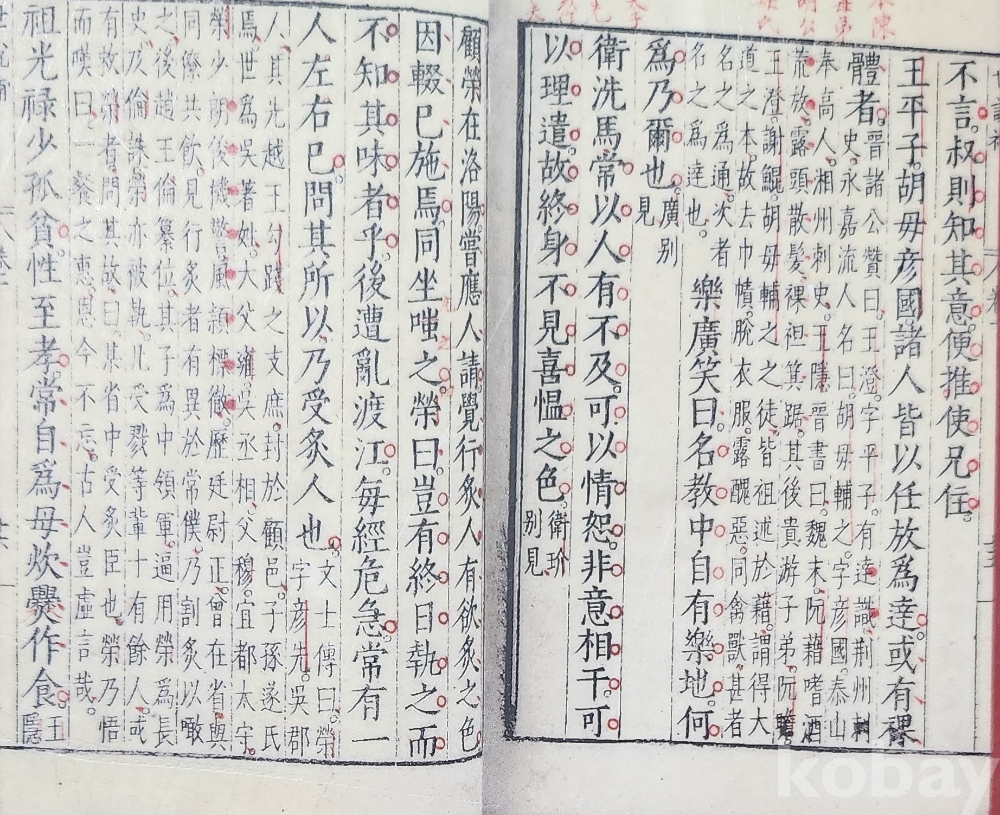 不言。叔則知其意。便推使兄住。
王平子。胡毋彥國諸人皆以任放爲達。或有裸
體者。
晉諸公贊曰。王澄。字平子。有達識。荊州刺
史。永嘉流人名曰。胡毋輔之。字彥國。泰山
奉高人。湘州刺史。王隱晉書曰。魏末。阮藉嗜酒
荒放。露頭散髮。裸袒箕踞。其後貴游子弟。阮瞻。
王澄。謝鯤。胡毋輔之之徒。皆祖述於藉。謂得大
道之本。故去巾幘。脫衣服。露醜惡。同禽獸。甚者
名之爲通。次者
名之爲達也。
樂廣笑曰。名教中自有樂地。何
爲乃爾也。
廣別
見
衛洗馬常以人有不及。可以情恕。非意相干。可
以理遣。故終身不見喜慍之色。
衛玠
別見
顧榮在洛陽。嘗應人請。覺行炙人有欲炙之色
因輟巳施焉。同坐嗤之。榮曰。豈有終日執之。而
不知其味者乎。後遭亂渡江。每經危急。常有一
人左右巳。問其所以。乃受炙人也。
文士傳曰。榮
字彥先。吳郡
人。其先越王勾踐之支庶。封於顧邑。子孫遂氏
焉。世爲吳著姓。大父雍。吳丞相。父穆。宜都太守。
榮少朗俊機警。風頴標徹。歷廷尉正。曾在省與
同僚共飲。見行炙者有異於常僕。乃割炙以噉
之。後趙王倫纂位。其子爲中領軍。逼用榮爲長
史。及倫誅。榮亦被執。凡受戮等輩十有餘人。或
有救榮者。問其故。曰。某省中受炙臣也。榮乃悟
而嘆曰。一餐之惠。恩今不忘。古人豈虛言哉。
祖光祿少孤貧。性至孝。常自爲母炊爨作食。
王
隱
kobay